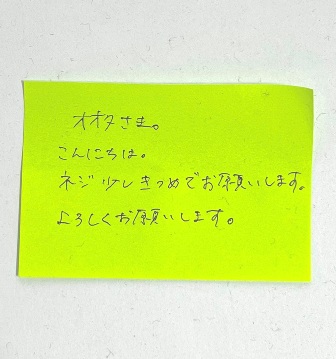 オオタさま。
こんにちは。
ネジ少しきつめでお願いします。
よろしくお願いします。